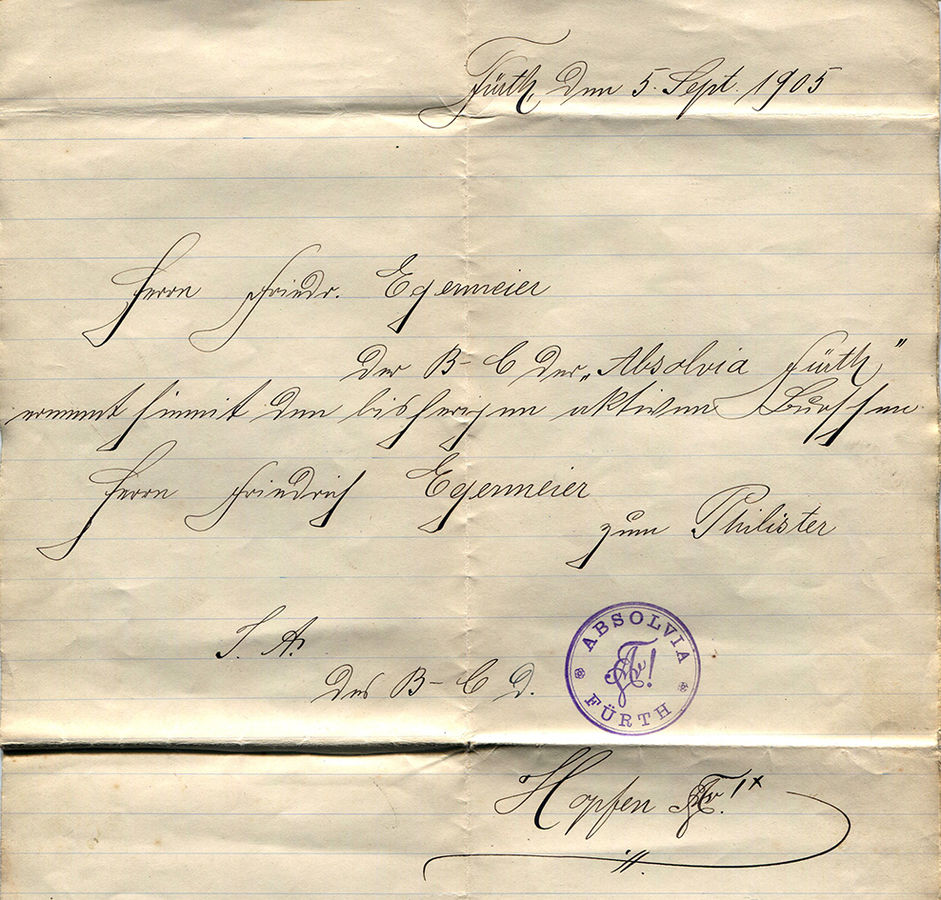 Fürth, den 5. Sept. 1905
Herrn Friedr. Egermeier
Der B-C der „Absolvia Fürth"
ernennt hiermit den bisherigen aktiven Burschen
Herrn Friedrich Egermeier
zum Philister
I. A.
des B-C d.
ABSOLVIA
FÜRTH
Hopfen